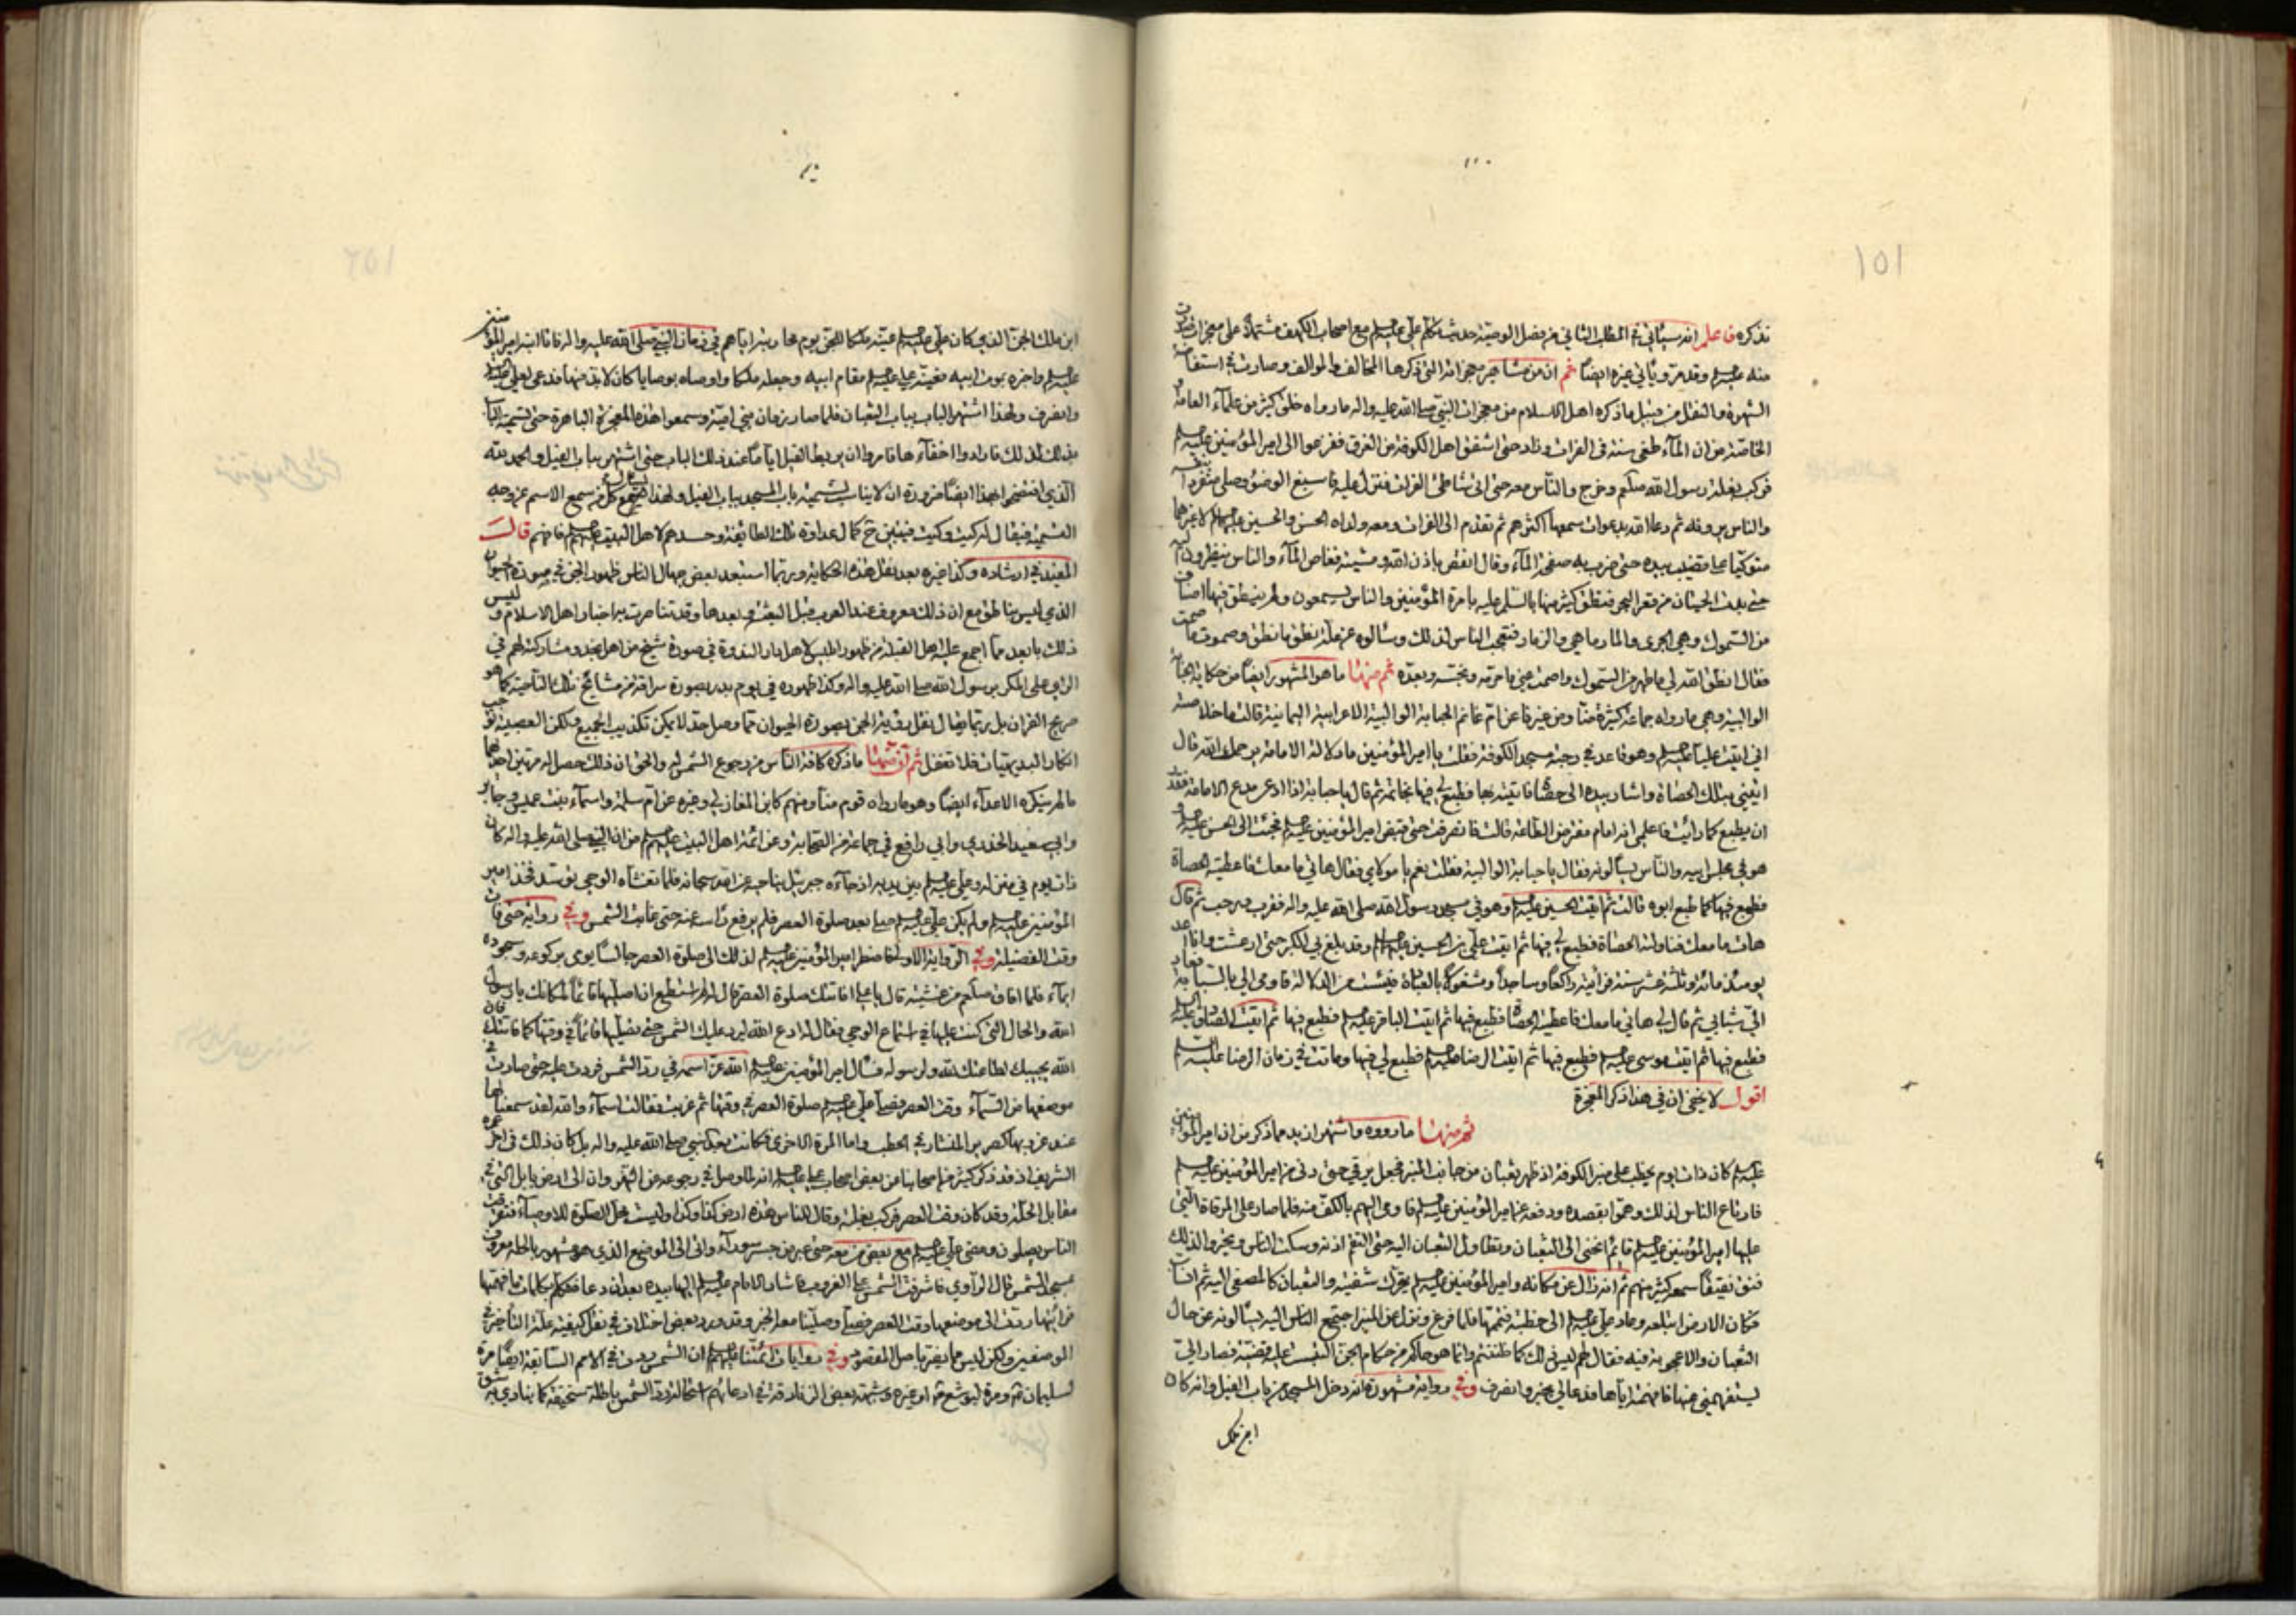 ١٥١
نذكره فاعلم انه سيأتي في المطلب الثاني من فصل الوصية حديث تكلم علي عليه السلم مع اصحاب الكهف مشتملا على معجزات صدرت
منه عليه السلم وقد مر ويأتي غيره ايضا ثم ان من مشاهير معجزاته التي ذكرها المخالف والموالف وصارت في استفاضة
الشهرة والنقل من قبيل ما ذكره اهل الاسلام من معجزات النبي صلى الله عليه واله ما رواه خلق كثير من علماء العامة
الخاصة من ان الماء طغى سنة في الفرات وزاد حتى اشفق اهل الكوفة من الغرق ففزعوا الى امير المؤمنين عليه السلم
فركب بغلة رسول الله صلعم وخرج والناس معه حتى اتى شاطئ الفرات فنزل عليه فاسبغ الوضوء وصلى منفردا بنفسه
والناس يرونه ثم دعا الله بدعوات سمعها اكثرهم ثم تقدم الى الفرات ومعه ولداه الحسن والحسين عليهم السلم لا غيرهما
متوكئا على قضيب بيده حتى ضرب به صفحة الماء وقال انقص باذن الله ومشيته فغاض الماء والناس ينظرون اليه
حتى بدت الحيتان من قعر البحر فنطق كثير منها بالسلم عليه بامرة المؤمنين والناس يسمعون ولم ينطق فيها اصناف
من السموك وهي الجرى والمارماهي والزمار فتعجب الناس لذلك وسألوه عن علة نطق ما نطق وصموت ما صمت
فقال انطق الله لي ما طهر من السموك واصمت عني ما حرمه ونجسه وبعده ثم منها ما هو المشهور ايضا من حكاية حبابة
الوالبية وهي ما رواه جماعة كثيرة منا ومن غيرنا عن ام غانم الحبابة الوالبية الاعرابية اليمانية قالت ما خلاصته
اني اتيت عليا عليه السلم وهو قاعد في رحبة مسجد الكوفة فقلت يا امير المؤمنين ما دلالة الامامة يرحمك الله قال
ايتيني بتلك الحصاة واشار بيده الى حصاة فاتيته بها فطبع لي فيها بخاتمه ثم قال يا حبابة اذا ادعى مدع الامامة فقدر
ان يطبع كما رأيت فاعلمي انه امام مفترض الطاعة قالت فانصرفت حتى قبض امير المؤمنين عليه السلم فجئت الى الحسن عليه السلم و
هو في مجلس ابيه والناس يسألونه فقال يا حبابة الوالبية فقلت نعم يا مولاي فقال هاتي ما معك فاعطيته الحصاة
فطبع فيها كما طبع ابوه قالت ثم اتيت الحسين عليه السلم وهو في مسجد رسول الله صلى الله عليه واله فقرب ورحب ثم قال
هات ما معك فناولته الحصاة فطبع لي فيها ثم اتيت علي بن الحسين عليهم السلم وقد بلغ بي الكبر حتى ارعشت وانا اعد
يومئذ مائة وثلثة عشر سنة فرأيته راكعا وساجدا ومشغولا بالعبادة فيئست من الدلالة فاومى الي بالسبابة فعاد
الي شبابي ثم قال لي هاتي ما معك فاعطيته الحصاة فطبع فيها ثم اتيت الباقر عليه السلم فطبع فيها ثم اتيت الصادق عليه السلم
فطبع فيها ثم اتيت موسى عليه السلم فطبع فيها ثم اتيت الرضا عليه السلم فطبع لي فيها وماتت في زمان الرضا عليه السلم
اقول لا يخفى ان في هذا ذكر المعجزة
ثم منها ما رووه واشتهر ازيد مما ذكر من ان امير المؤمنين
عليه السلم كان ذات يوم يخطب على منبر الكوفة اذ ظهر ثعبان من جانب المنبر فجعل يرقى حتى دنى من امير المؤمنين عليه السلم
فارتاع الناس لذلك وهموا بقصده ودفعه عن امير المؤمنين عليه السلم فاومى اليهم بالكف عنه فلما صار على المرقاة التي
عليها امير المؤمنين عليه السلم قائم انحنى الى الثعبان وتطاول الثعبان اليه حتى التقم اذنه وسكت الناس وتحيروا لذلك
فنق نقيقا سمعه كثير منهم ثم انه زال عن مكانه وامير المؤمنين عليه السلم يحرك شفتيه والثعبان كالمصغي اليه ثم انساب
فكان الارض ابتلعته وعاد علي عليه السلم الى خطبته فتممها فلما فرغ ونزل عن المنبر اجتمع الناس اليه يسألونه عن حال
الثعبان والاعجوبة فيه فقال لهم ليس ذلك كما ظننتم وانما هو حاكم من حكام الجن التبست عليه قضية فصار الي
ليستفهمني عنها فافهمته اياها فدعا لي بخير وانصرف وفي رواية مشهورة انه دخل المسجد من باب الفيل وانه كان
ابن ملك
١٥٢
ابن ملك الجن الذي كان علي عليه السلم عينه ملكا للجن يوم محاربته اياهم في زمان النبي صلى الله عليه واله فاتا ابنه امير المؤمنين
عليه السلم واخبره بموت ابيه فعينه علي عليه السلم مقام ابيه وجعله ملكا واوصاه بوصايا كان لابد منها فدعى لعلي عليه السلم
وانصرف ولهذا اشتهر الباب بباب الثعبان فلما صار زمان بني امية وسمعوا هذه المعجزة الباهرة حتى تسمية الباب
بذلك لذلك فارادوا اخفاءها فامروا ان يربط الفيل اياما عند ذلك الباب حتى اشتهر بباب الفيل والحمد لله
الذي افتضحوا بهذا ايضا ضرورة ان لا يناسب تسمية باب المسجد بباب الفيل ولهذا يسأل كل من سمع الاسم عن وجه
التسمية فيقال له كيت وكيت فيتبين ح كمال عداوة تلك الطائفة وحسدهم لاهل البيت عليهم السلم فافهم قال
المفيد في ارشاده وكذا غيره بعد نقل هذه الحكاية وربما استبعد بعض جهال الناس ظهور الجن في صورة الحيوان
الذي ليس بناطق مع ان ذلك معروف عند العرب قبل البعثة وبعدها وقد تناصرت به اخبار اهل الاسلام وليس
ذلك بابعد مما اجمع عليه اهل القبلة من ظهور ابليس لاهل دار الندوة في صورة شيخ من اهل نجد ومشاركته لهم في
الراي على المكر برسول الله صلى الله عليه واله وكذا ظهوره في يوم بدر بصورة سراقة من مشائخ تلك الناحية كما هو
صريح القران بل ربما يقال نقل رؤية الجن بصورة الحيوان مما وصل حد لا يمكن تكذيب الجميع ولكن العصبية توجب
انكار البديهيات فلا تغفل ثم ان منها ما ذكره كافة الناس من رجوع الشمس له والحق ان ذلك حصل له مرتين احديهما
ما لم ينكره الاعداء ايضا وهو ما رواه قوم منا ومنهم كابن المغازلي وغيره عن ام سلمة واسماء بنت عميس وجابر
وابي سعيد الخدري وابي رافع في جماعة من الصحابة وعن ائمة اهل البيت عليهم السلم من ان النبي صلى الله عليه واله كان
ذات يوم في منزله وعلي عليه السلم بين يديه اذ جاءه جبرئيل يناجيه عن الله سبحانه فلما تغشاه الوحي توسد فخذ امير
المؤمنين عليه السلم ولم يكن علي عليه السلم صلى بعد صلوة العصر فلم يرفع راسه عنه حتى غابت الشمس وفي رواية حتى فات
وقت الفضيلة وفي الرواية الاولى فاضطر امير المؤمنين عليه السلم لذلك الى صلوة العصر جالسا يومى بركوعه وسجوده
ايماء فلما افاق صلعم من غشيته قال يا علي افاتتك صلوة العصر قال له لم استطع ان اصليها قائما لمكانك يا رسول
الله والحال التي كنت عليها في استماع الوحي فقال له ادع الله ليرد عليك الشمس حتى تصليها قائما في وقتها كما فاتتك فان
الله يجيبك لطاعتك لله ولرسوله فسأل امير المؤمنين عليه السلم الله عز اسمه في رد الشمس فردت عليه حتى صارت في
موضعها من السماء وقت العصر فصلى علي عليه السلم صلوة العصر في وقتها ثم غربت فقالت اسماء والله لقد سمعنا لها
عند غروبها كصرير المنشار في الحطب واما المرة الاخرى فكانت بعد النبي صلى الله عليه واله بل كان ذلك في اخر عمره
الشريف اذ قد ذكر كثير من اصحابنا عن بعض اصحاب علي عليه السلم انه لما وصل في رجوعه من النهروان الى ارض بابل التي في
مقابل الحلة وقد كان وقت العصر فركب بغلته وقال للناس هذه ارض كذا وكذا وليست محل الصلوة للاوصياء فتفرقت
الناس يصلون ومضى علي عليه السلم مع بعض من معه حتى عبر من جسر سوراء واتى الى الموضع الذي هو مشهور بالحلة معروف
بمسجد الشمس قال الراوي فاشرفت الشمس على الغروب فاشار الامام عليه السلم اليها بيده بعد ان دعا فتكلم بكلمات ما فهمتها
فرأيتها رجعت الى موضعها وقت العصر فصلى وصلينا معه الخبر وقد ورد بعض اختلاف في نقل كيفية علة التأخير في
الموضعين ولكن ليس مما يضر باصل المقصود وفي روايات ائمتنا عليهم السلم ان الشمس ردت في الامم السابقة ايضا مرة
لسليمان ع ومرة ليوشع ع او غيره وشبهة بعض الزنادقة في ادعائهم استحالة رد الشمس باطلة سخيفة كما ينادي به شق